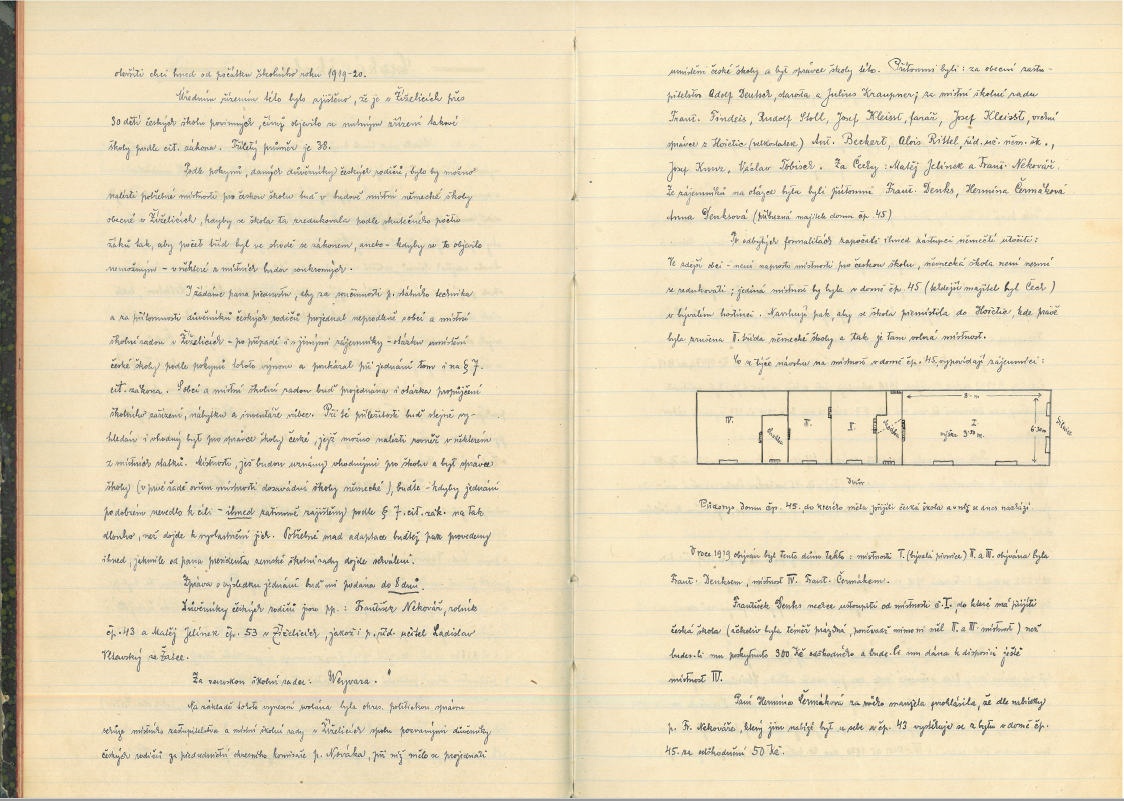 otevříti chci hned od počátku školního roku 1919-20.
Úředním řízením této bylo zjištěno, že je v Žiželicích přes
30 dětí českých školou povinných, čímž objevilo se nutným zřízení takové
školy podle cit. zákona. Tříletý průměr je 38.
Podle pokynů, daných důvěrníky českých rodičů, bylo by možno
nalézti potřebné místnosti pro českou školu buď v budově místní německé školy
obecné v Žiželicích, kdyby se škola ta zredukovala podle skutečného počtu
žáků tak, aby počet tříd byl ve shodě se zákonem, anebo - kdyby se to objevilo
nemožným - v některé z místních budov soukromých.
I žádáme pana přednostu, aby za součinnosti p. státního technika
a za přítomnosti důvěrníků českých rodičů projednal neprodleně s obcí a místní
školní radou v Žiželicích - po případě i s jinými zájemníky - otázku umístění
české školy podle pokynů tohoto výnosu a poukázal při jednání tom i na § 7.
cit. zákona. S obcí a místní školní radou buď projednána i otázka propůjčení
školního zařízení, nábytku a inventáře vůbec. Při té příležitosti buď stejně vy-
hledán i vhodný byt pro správce školy české, jejž možno nalézti rovněž v některém
z místních statků. Místnosti, jež budou uznány vhodnými pro školu a byt správce
školy (v prvé řadě ovšem místnosti dosavádní školy německé), buďte - kdyby jednání
podobrém nevedlo k cíli - ihned zatímně zajištěny podle § 7. cit. zák. na tak
dlouho, než dojde k vyvlastnění jich. Potřebné snad adaptace budtež pak provedeny
ihned, jakmile od pana presidenta zemské školní rady dojde schválení.
Zpráva o výsledku jednání buď mi podána do 8 dnů.
Důvěrníky českých rodičů jsou pp.: František Nekovář, rolník
čp. 43 a Matěj Jelínek čp. 53 v Žiželicích, jakož i p. říd. učitel Ladislav
Vltavský ze Žatce.
Za zemskou školní radu: Weyvara.
Na základě tohoto vynesení svolána byla okres. politickou správou
schůze místního zastupitelstva a místní školní rady v Žiželicích spolu pozvanými důvěrníky
českých rodičů za předsednictví okresního komisaře p. Nováka, při níž mělo se projednati
umístění české školy a byt správce školy této. Přítomni byli: za obecní zastu-
pitelstvo Adolf Deutsch, starosta a Julius Kraupner; za místní školní radu
Frant. Tindeis, Rudolf Stoll, Josef Kleissl, farář, Josef Kleissl, vrchní
správce z Hoštic (velkostatek) Ant. Beckert, Alois Rittel, říd. uč. něm. šk.,
Josef Kunz, Václav Tobisch. Za Čechy: Matěj Jelínek a Frant. Nekovář.
Ze zájemníků na otázce bytu byli přítomni Frant. Denks, Hermína Čermáková
Anna Denksová (příbuzná majitele domu čp. 45)
Po odbytých formalitách započali ihned zástupci němečtí útočiti:
Ve zdejší obci - není naprosto místnosti pro českou školu, německá škola není nesmí
se redukovati; jediná místnost by byla v domě čp. 45 (tehdejší majitel byl Čech)
v bývalém hostinci. Navrhují pak, aby se škola přemístila do Hoštic, kde právě
byla zrušena II. třída německé školy a tak je tam volná místnost.
Co se týče návrhu na místnost v domě čp. 45, vypovídají zájemníci:
IV.
chodba
II.
I.
chodba
8· m
I.
výška 3·20 m.
6·30 m
Silnice
Dvůr
Půdorys domu čp. 45. do kterého měla přijíti česká škola a v němž se dnes nachází
V roce 1919 obýván byl tento dům takto: místnosti I. (bývalá pivnice) II. a III. obývána byla
Frant. Denksem, místnost IV. Frant. Čermákem.
František Denks nechce ustoupiti od místnosti č. I., do které má přijíti
česká škola (ačkoliv byla téměř prázdná, poněvadž mimo ni měl II. a III. místnost) než
bude-li mu poskytnuto 300 Kč odškodného a bude-li mu dána k disposici ještě
místnost IV.
Paní Hermína Čermáková za svého manžela prohlásila, že dle nabídky
p. Fr. Nekováře, který jim nabízí byt u sebe v čp. 43 vystěhuje se z bytu v domě čp.
45. za odškodnění 50 Kč.